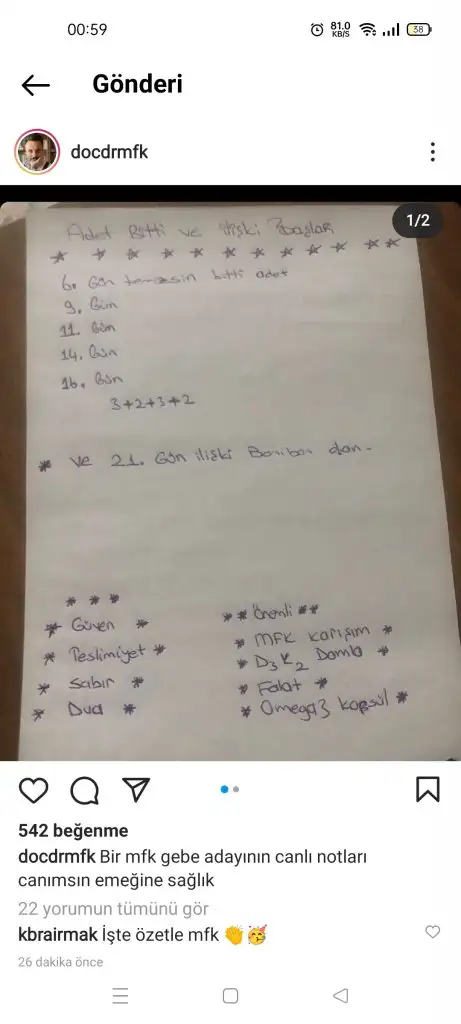 00:59
81.0
KB/S
38
Gönderi
docdrmfk
1/2
Adet Bitti ve ilişki Başlar
6. Gün bitti adet
9. Gün
11. Gün
14. Gün
16. Gün
3+2+3+2
* ve 21. Gün ilişki dan.
* * *
* Güven *
* Teslimiyet *
* Sabır *
* Dua *
** Önemli **
* MFK Karışım *
* D3K2 Damla *
* Folat *
* Omega3 kapsül *
542 beğenme
docdrmfk Bir mfk gebe adayının canlı notları
canımsın emeğine sağlık
22 yorumun tümünü gör
kbrairmak İşte özetle mfk 👏🥳
26 dakika önce